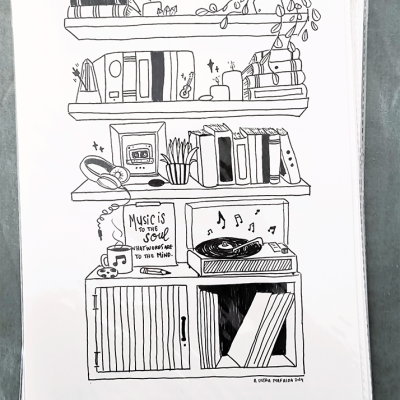 MUSIC IS
TO THE
SOUL
WHAT WORDS ARE
TO THE MIND.